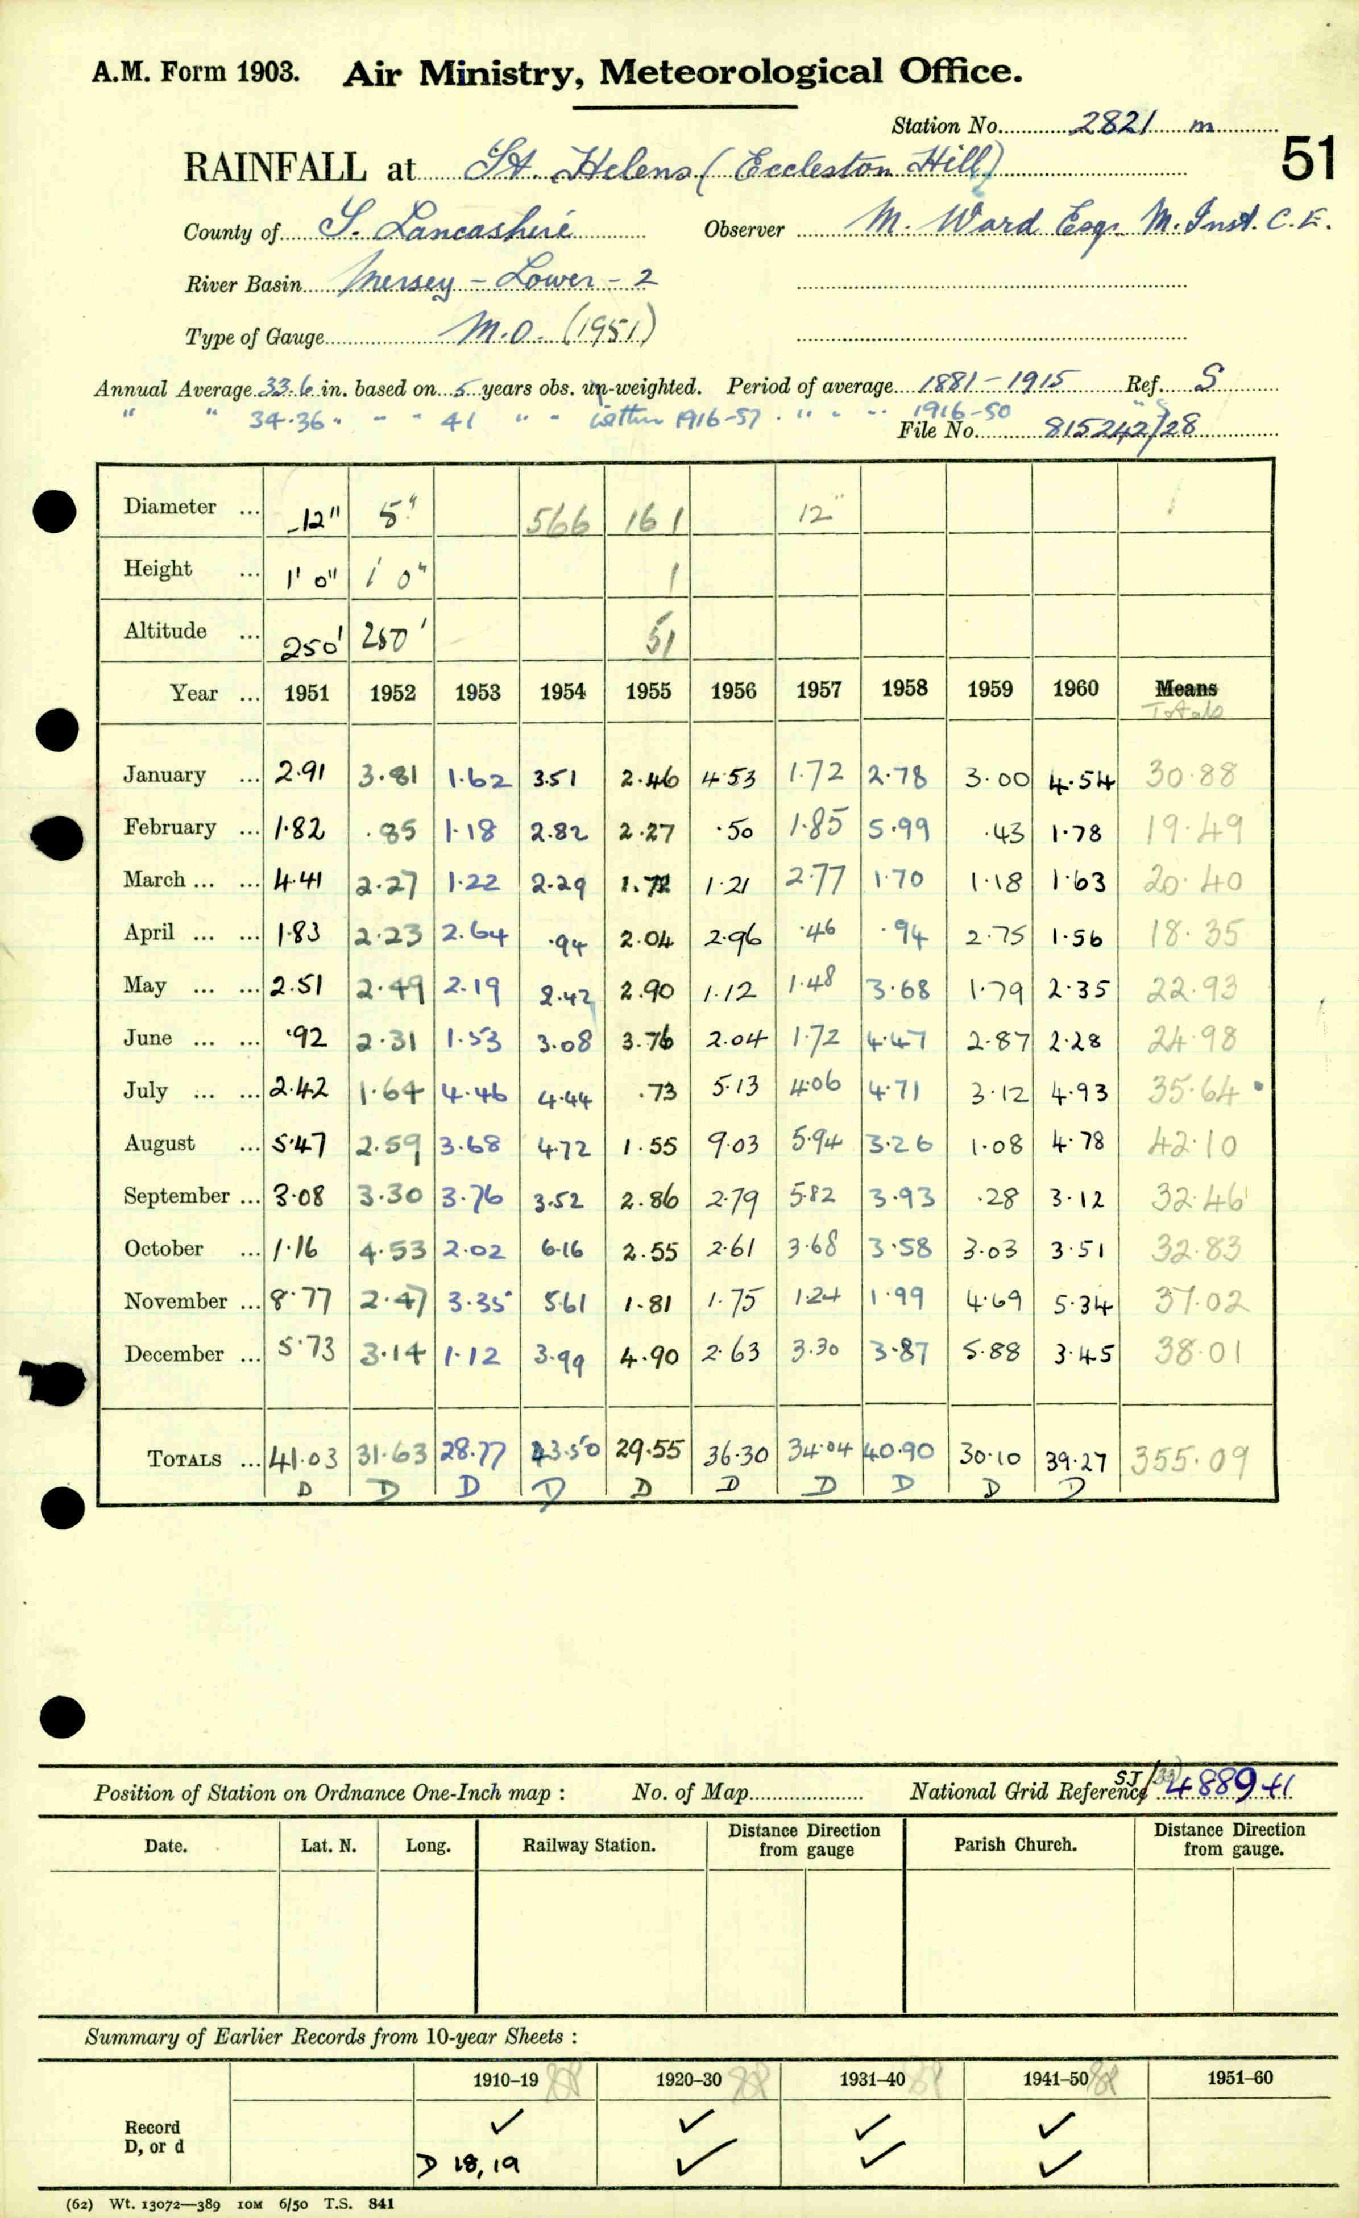 A.M. Form 1903. Air Ministry, Meteorological Office.
Station No. 2821 m
51
RAINFALL at St. Helens (Eccleston Hill)
County of S. Lancashire Observer M. Ward Esq. M. Inst. C. E.
River Basin Mersey - Lower - 2
Type of Gauge M.O. (1951)
Annual Average 33.6 in. based on 5 years obs. un-weighted. Period of average 1881-1915 Ref. S
" " 34.36 " - - " 41 " " - within 1916-57 . " " - " 1916-50 "
File No. 815242/28
Diameter ... 12" 5" 566 161 12"
Height ... 1' 0" 1' 0" 1
Altitude ... 250' 250' 51
Year ... 1951 1952 1953 1954 1955 1956 1957 1958 1959 1960 Means
Totals
January ... 2.91 3.81 1.62 3.51 2.46 4.53 1.72 2.78 3.00 4.54 30.88
February ... 1.82 .85 1.18 2.82 2.27 .50 1.85 5.99 .43 1.78 19.49
March ... ... 4.41 2.27 1.22 2.29 1.72 1.21 2.77 1.70 1.18 1.63 20.40
April ... ... 1.83 2.23 2.64 .94 2.04 2.96 .46 .94 2.75 1.56 18.35
May ... ... 2.51 2.49 2.19 2.42 2.90 1.12 1.48 3.68 1.79 2.35 22.93
June ... ... .92 2.31 1.53 3.08 3.76 2.04 1.72 4.47 2.87 2.28 24.98
July ... ... 2.42 1.64 4.46 4.44 .73 5.13 4.06 4.71 3.12 4.93 35.64
August ... 5.47 2.59 3.68 4.72 1.55 9.03 5.94 3.26 1.08 4.78 42.10
September ... 3.08 3.30 3.76 3.52 2.86 2.79 5.82 3.93 .28 3.12 32.46
October ... 1.16 4.53 2.02 6.16 2.55 2.61 3.68 3.58 3.03 3.51 32.83
November ... 8.77 2.47 3.35 5.61 1.81 1.75 1.24 1.99 4.69 5.34 37.02
December ... 5.73 3.14 1.12 3.99 4.90 2.63 3.30 3.87 5.88 3.45 38.01
TOTALS ... 41.03 31.63 28.77 43.50 29.55 36.30 34.04 40.90 30.10 39.27 355.09
D D D D D D D D D D
Position of Station on Ordnance One-Inch map : No. of Map National Grid Reference SJ/(33) 488941
Date. Lat. N. Long. Railway Station. Distance from Direction gauge Parish Church. Distance from Direction gauge.
Summary of Earlier Records from 10-year Sheets :
1910–19 1920–30 1931–40 1941–50 1951–60
Record ✓ ✓ ✓ ✓
D, or d D 18, 19 ✓ ✓ ✓
(62) Wt. 13072—389 10M 6/50 T.S. 841